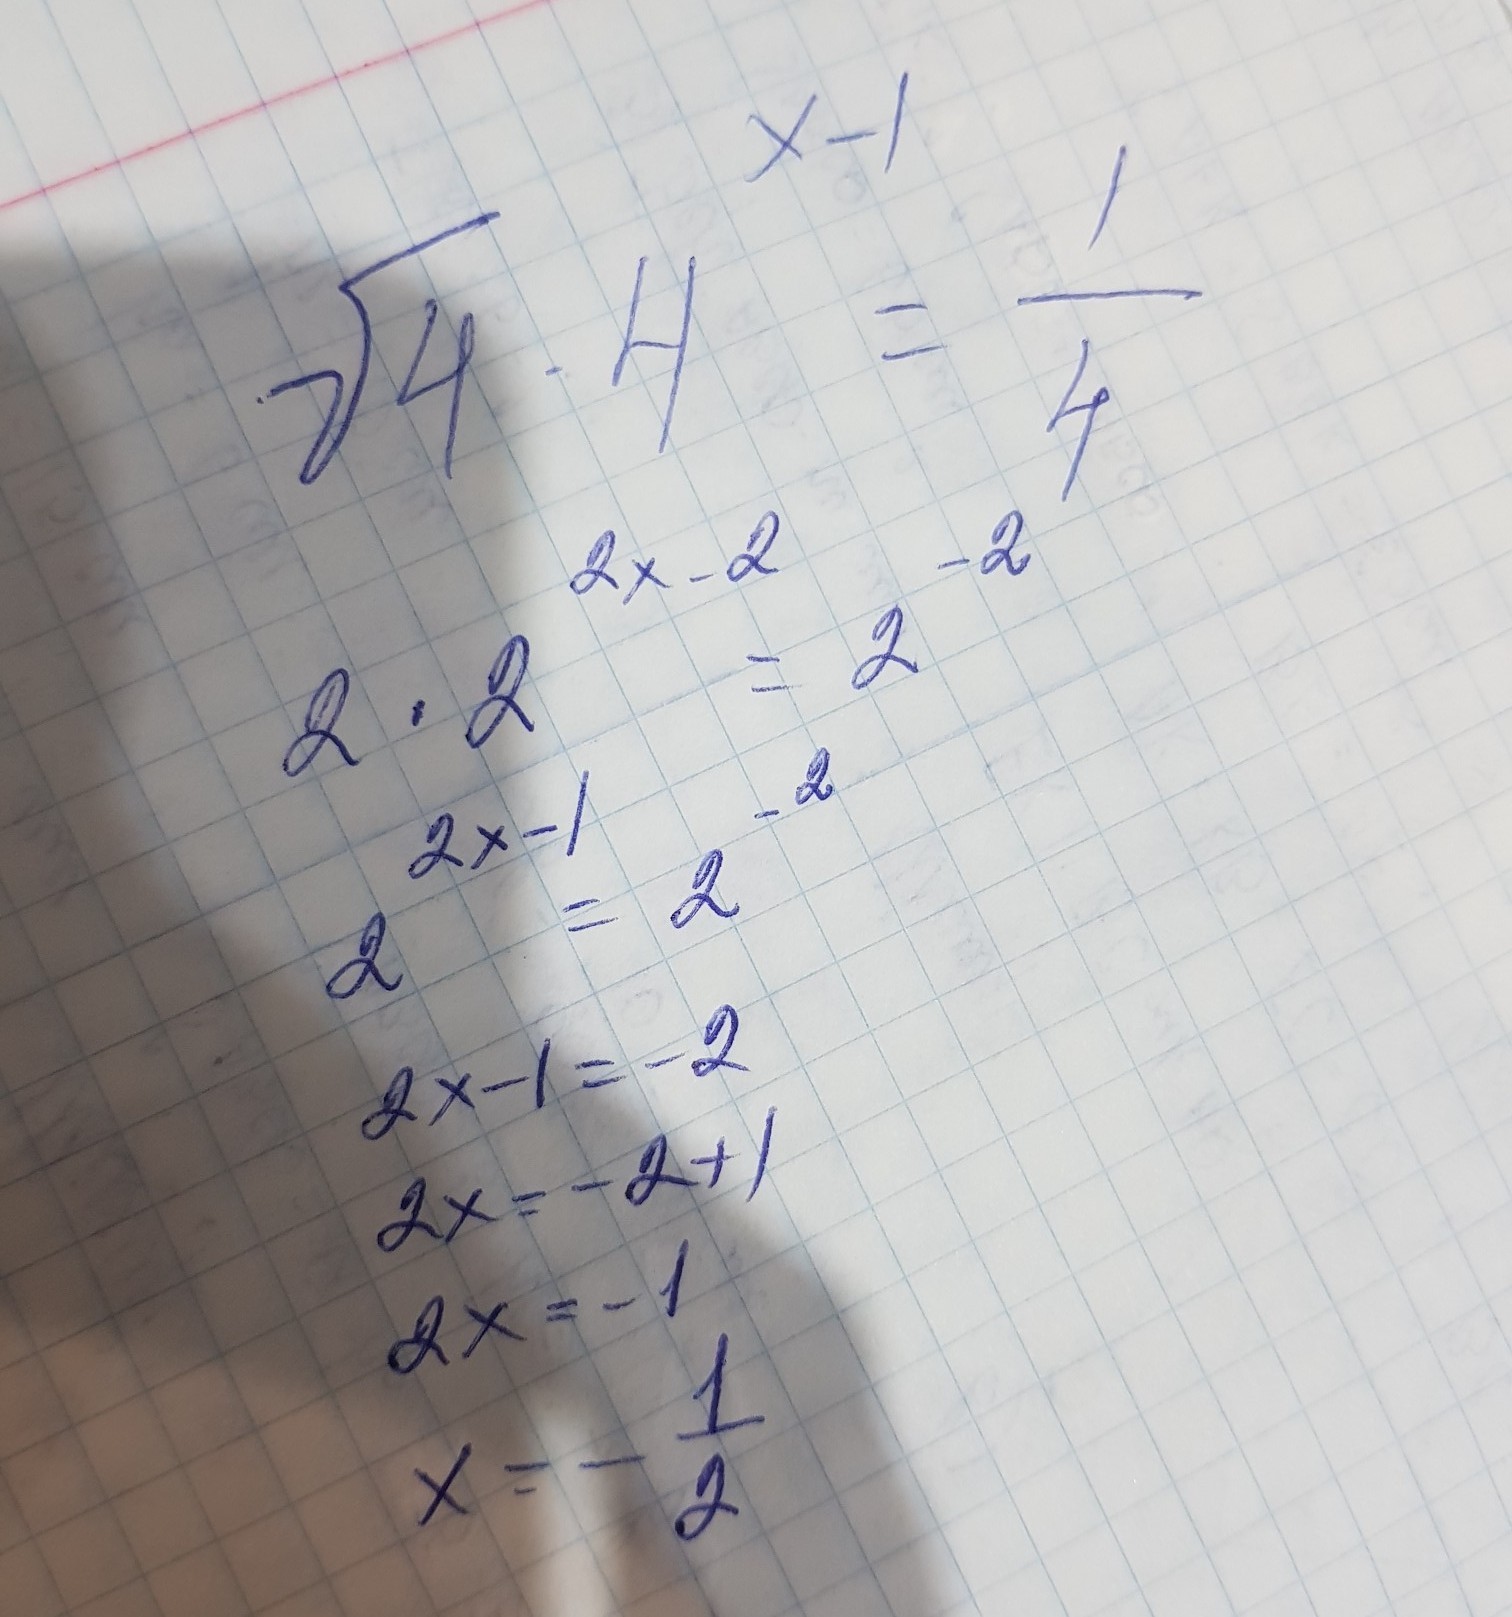 √4 · 4^(x-1) = 1/4
2 · 2^(2x-2) = 2^(-2)
2^(2x-1) = 2^(-2)
2x-1=-2
2x=-2+1
2x=-1
x=-1/2